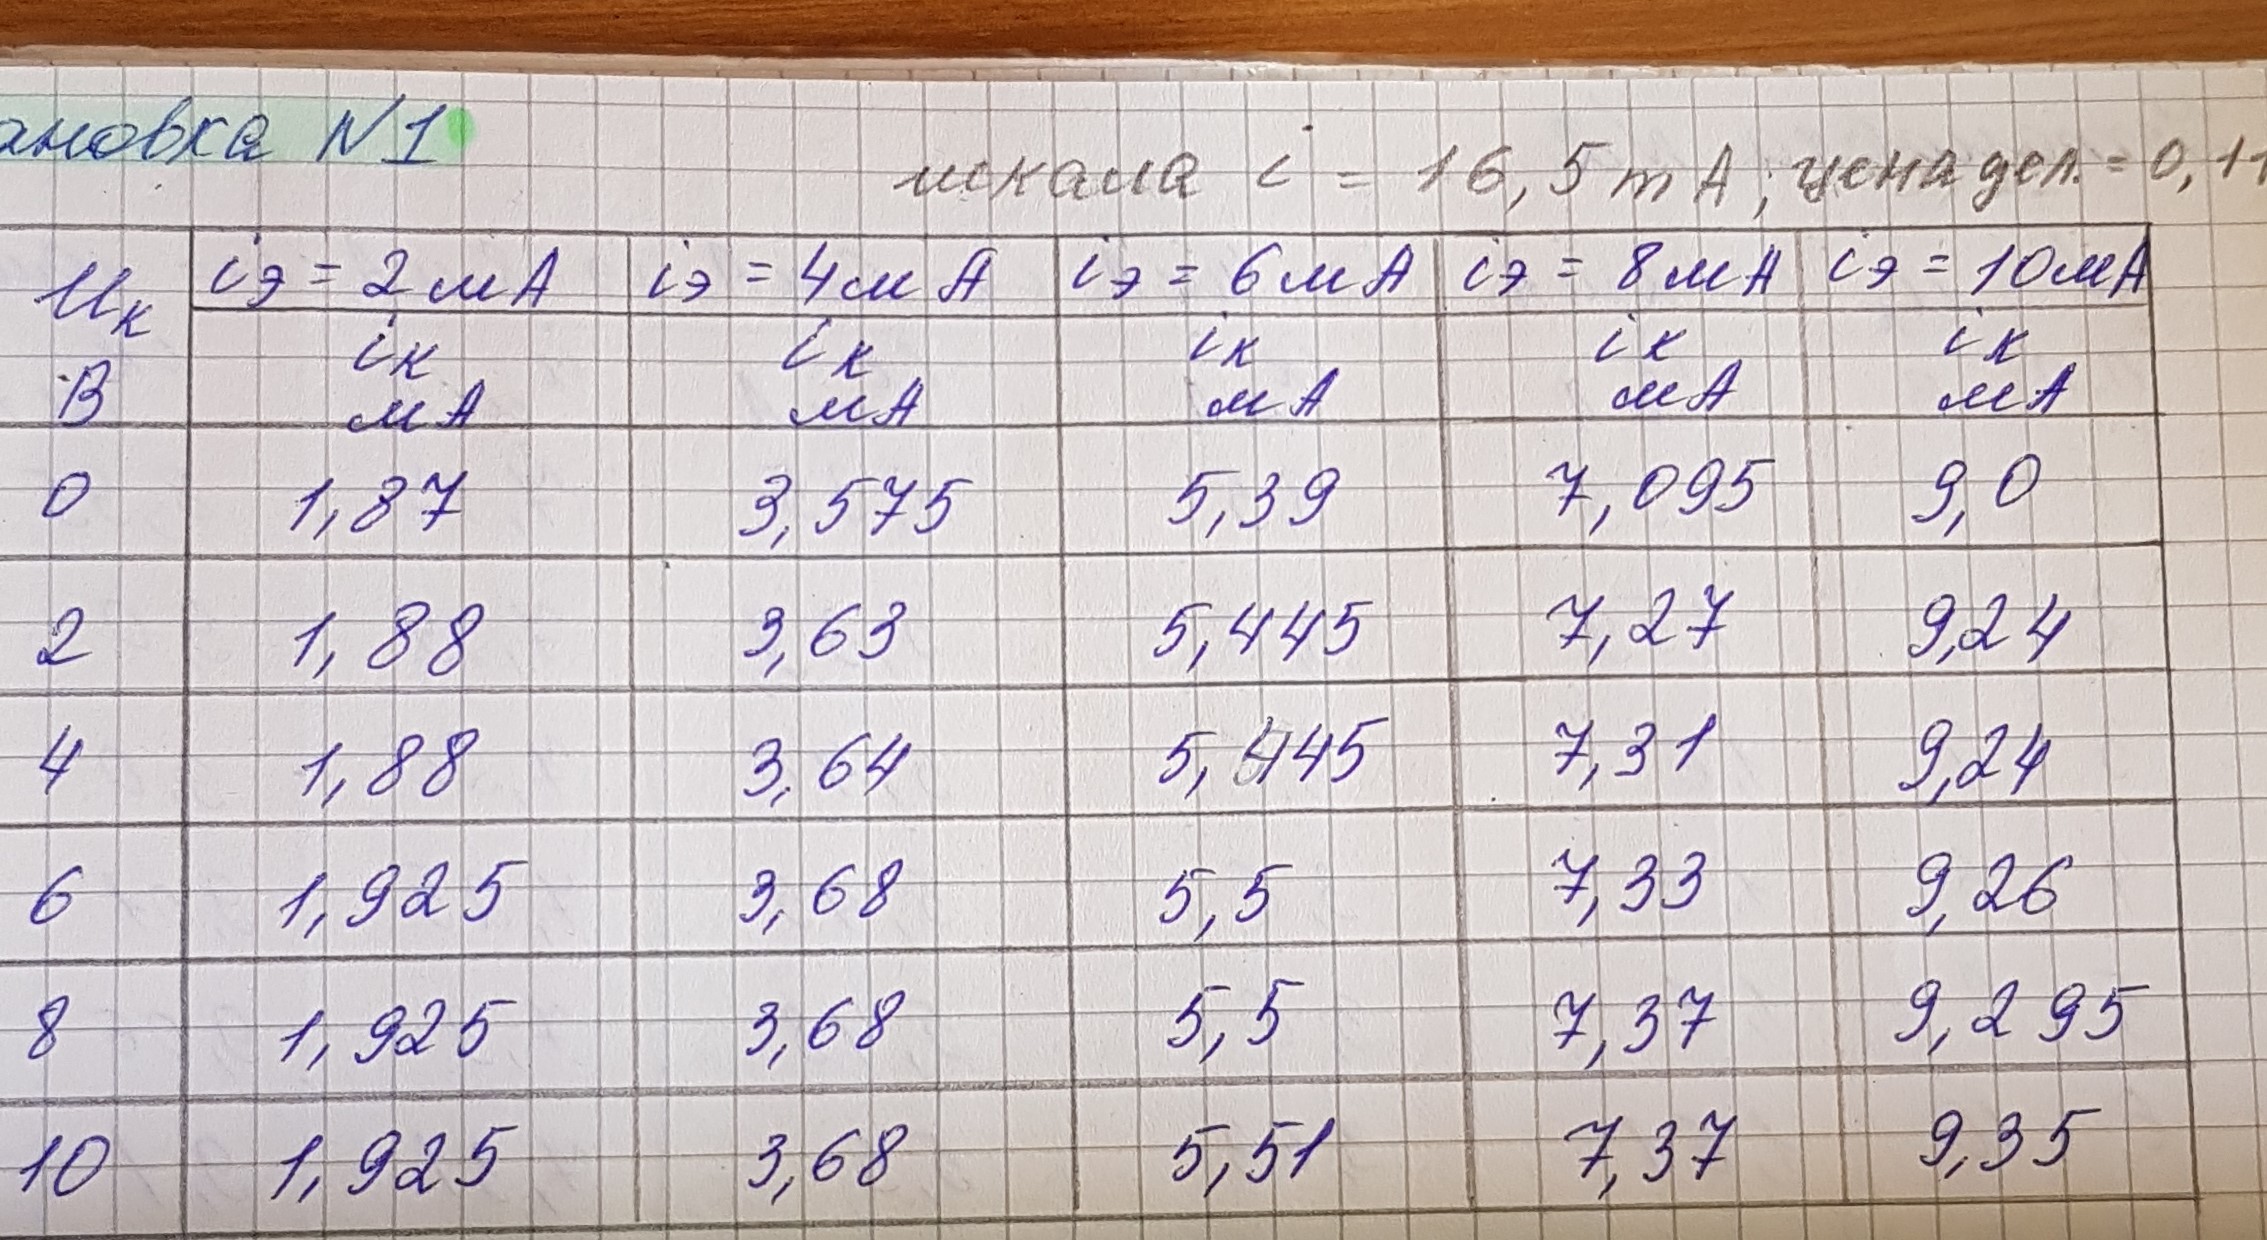 ановка N1
шкала i = 16,5 mA; цена дел. = 0,11
Uк В iэ = 2 мА iэ = 4 мА iэ = 6 мА iэ = 8 мА iэ = 10 мА
iк мА iк мА iк мА iк мА iк мА
0 1,87 3,575 5,39 7,095 9,0
2 1,88 3,63 5,445 7,27 9,24
4 1,88 3,64 5,445 7,31 9,24
6 1,925 3,68 5,5 7,33 9,26
8 1,925 3,68 5,5 7,37 9,295
10 1,925 3,68 5,51 7,37 9,35